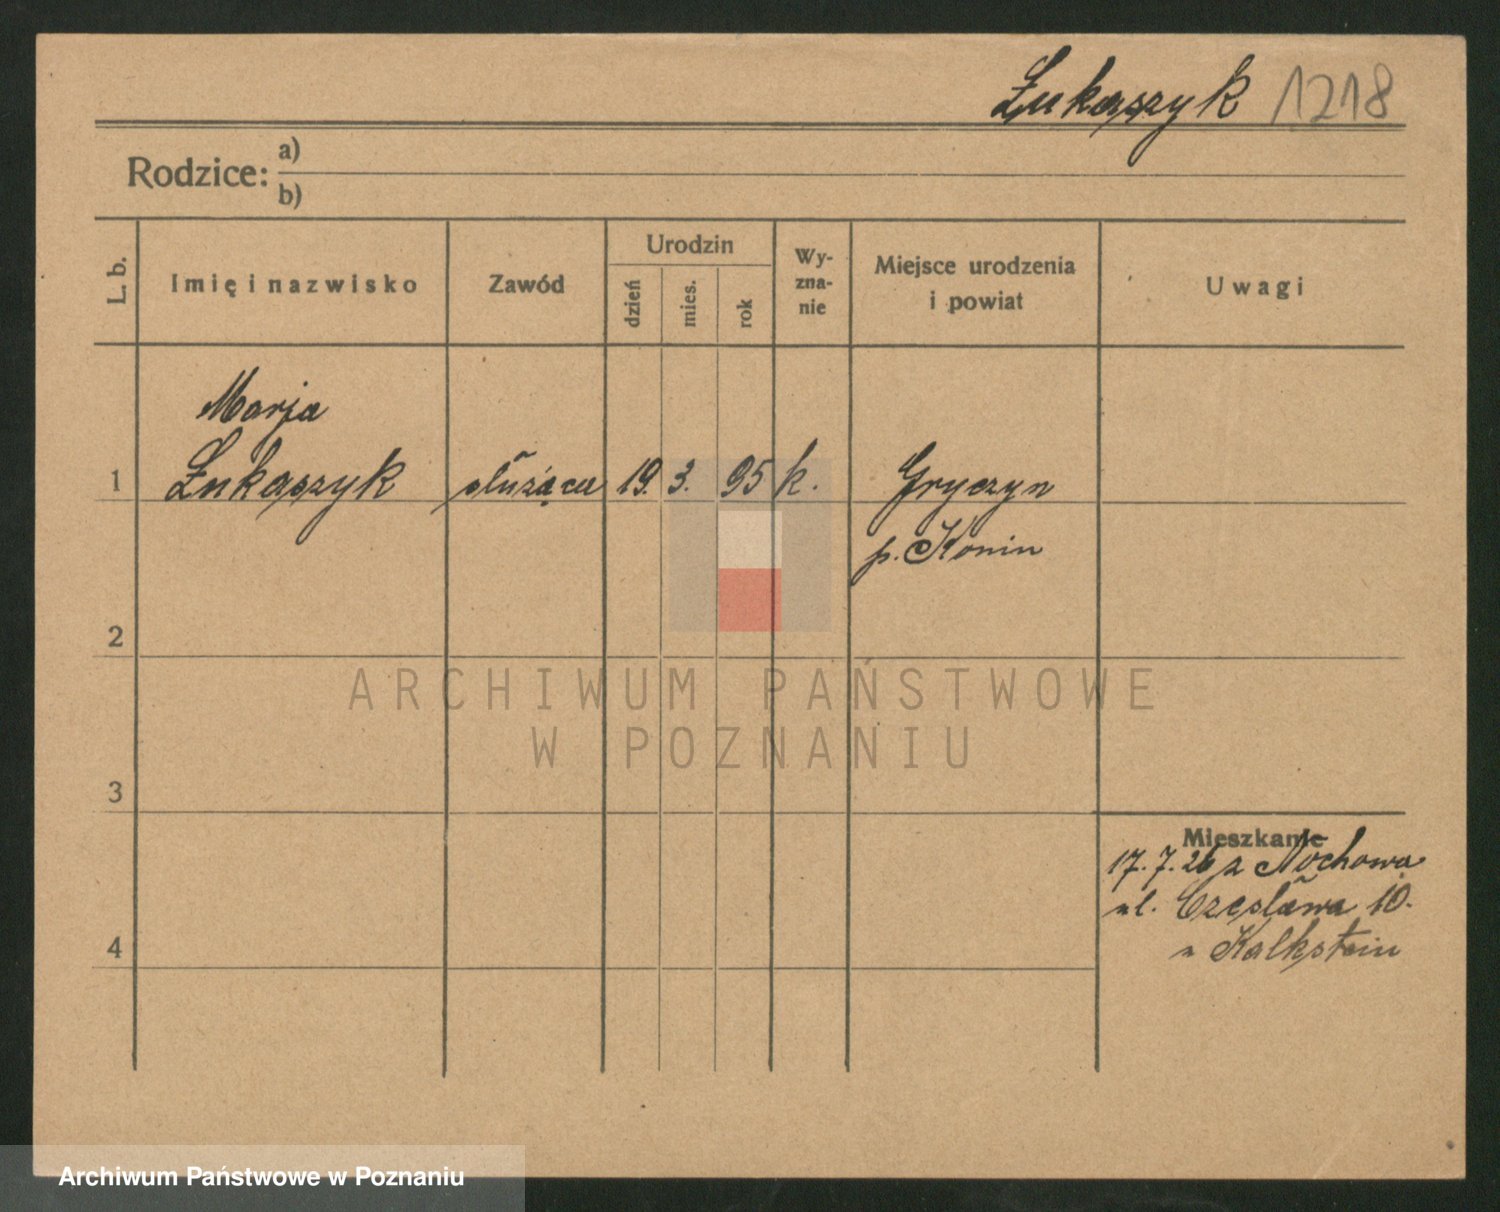 Łukaszyk 1218
Rodzice: a)
b)
L. b.
Imię i nazwisko
Zawód
Urodzin
dzień
mies.
rok
Wy-
zna-
nie
Miejsce urodzenia
i powiat
Uwagi
Marja
1 Łukaszyk służąca 19. 3. 95 k. Gryczyn
p. Konin
2
3
4
Mieszkanie
17. 7. 26 z Nochowa
ul. Czesława 10.
u Kalkstein
ARCHIWUM PAŃSTWOWE
W POZNANIU
Archiwum Państwowe w Poznaniu